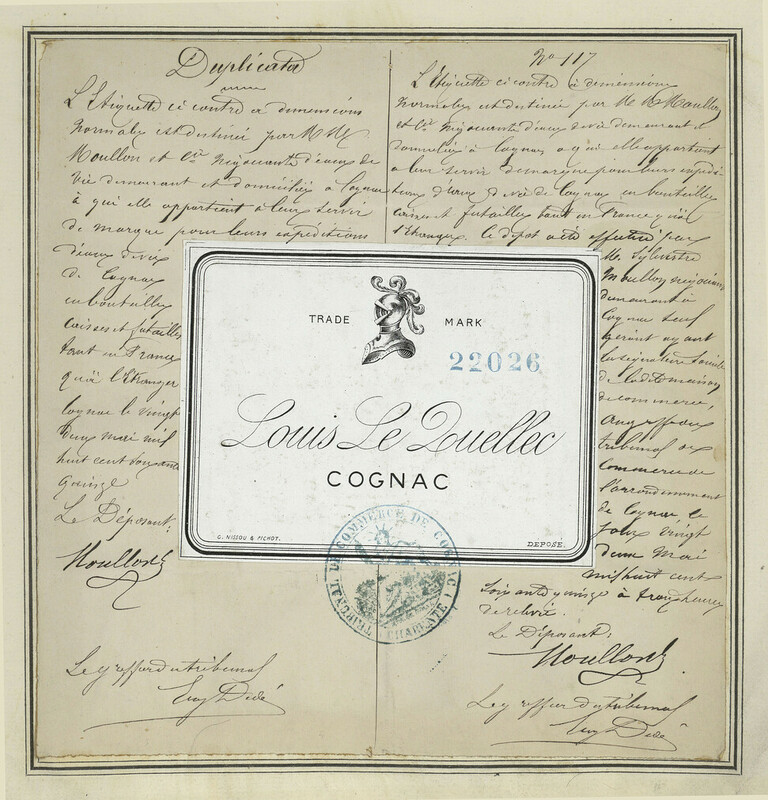 Duplicata
L'Etiquette ci contre a dimensions
normales est destinée par M M
Moullon et Cie négociants d'eaux de
vie demeurant et domiciliés à Cognac
à qui elle appartient à leur servir
de marque pour leurs expéditions
d'eaux de vie
de Cognac
en bouteilles
caisses et futailles
tant en France
qu'à l'Etranger
Cognac le vingt
deux mai mil
huit cent soixante
quinze
Le Déposant:
Moullon
Le greffier du tribunal
Eug Dedé
No 117
L'Etiquette ci contre à dimensions
normales est destinée par M M Moullon
et Cie négociants d'eaux de vie demeurant et
domiciliés à Cognac à qui elle appartient
a leur servir de marque pour leurs expédi
tions d'eaux de vie de Cognac en bouteilles
caisses et futailles tant en France qu'à
l'Etranger. Ce dépot a été effectué par
M. Sylvestre
Moullon négociant
demeurant à
Cognac seul
gérant ayant
la signature sociale
de ladite maison
de commerce,
au greffe du
tribunal de
Commerce de
l'arrondissement
de Cognac le
jour vingt
deux Mai
mil huit cent
soixante quinze à trois heures
de relevée.
Le Déposant:
Moullon
Le greffier du tribunal
Eug Dedé
TRADE MARK
22026
Louis Le Quellec
COGNAC
G. NISSOU & PICHOT.
DEPOSÉ.
TRIBUNAL DE COMMERCE DE COGNAC (CHARENTE)